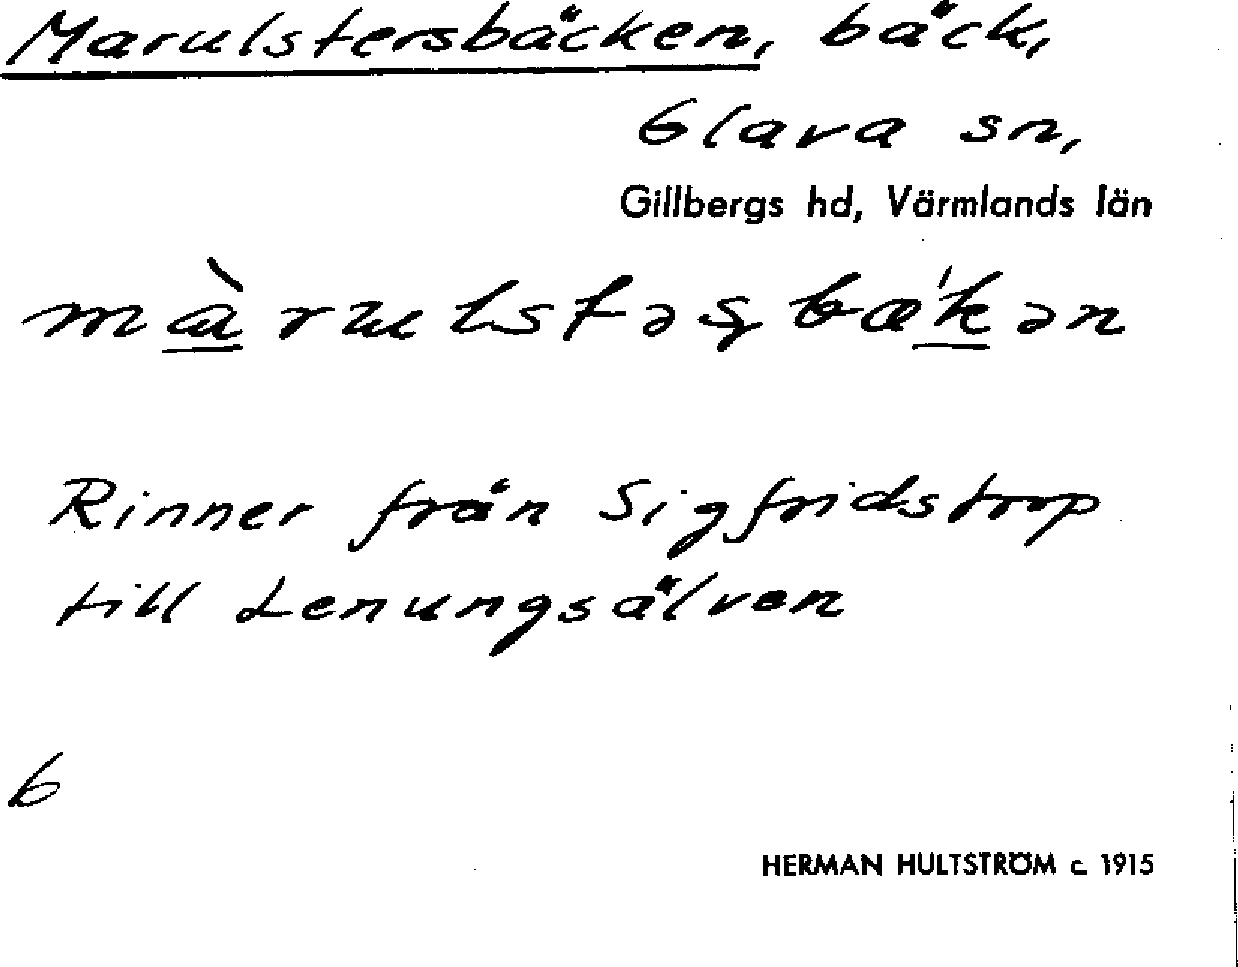 Marulstersbäcken, bäck,
Glava sn,
Gillbergs hd, Värmlands län
màrulstəʂbæ'kən
Rinner från Sigfridstorp
till Lenungsälven
6
HERMAN HULTSTRÖM c. 1915